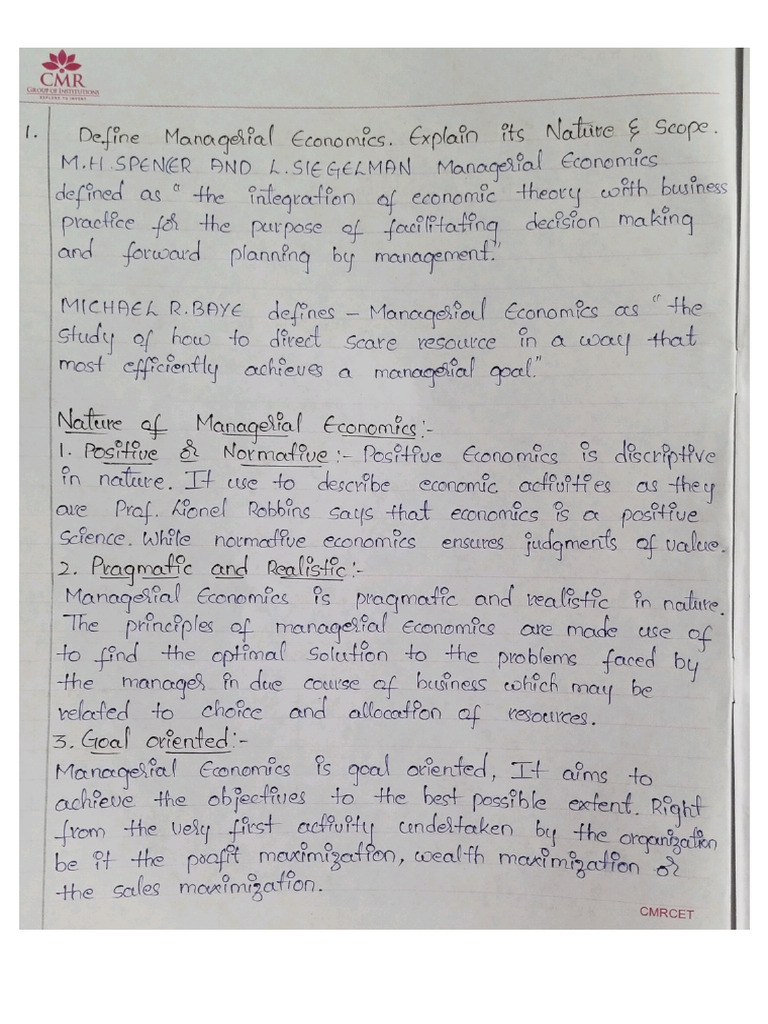 CMR
GROUP OF INSTITUTIONS
EXPLORE TO INVENT
1. Define Managerial Economics. Explain its Nature & Scope.
M.H.SPENER AND L.SIEGELMAN Managerial Economics
defined as "the integration of economic theory with business
practice for the purpose of facilitating decision making
and forward planning by management."
MICHAEL R.BAYE defines - Managerial Economics as "the
study of how to direct scare resource in a way that
most efficiently achieves a managerial goal."
Nature of Managerial Economics:-
1. Positive & Normative:- Positive Economics is discriptive
in nature. It use to describe economic activities as they
are Prof. Lionel Robbins says that economics is a positive
science. While normative economics ensures judgments of value.
2. Pragmatic and Realistic:-
Managerial Economics is pragmatic and realistic in nature.
The principles of managerial Economics are made use of
to find the optimal solution to the problems faced by
the manager in due course of business which may be
related to choice and allocation of resources.
3. Goal oriented:-
Managerial Economics is goal oriented, It aims to
achieve the objectives to the best possible extent. Right
from the very first activity undertaken by the organization
be it the profit maximization, wealth maximization or
the sales maximization.
CMRCET